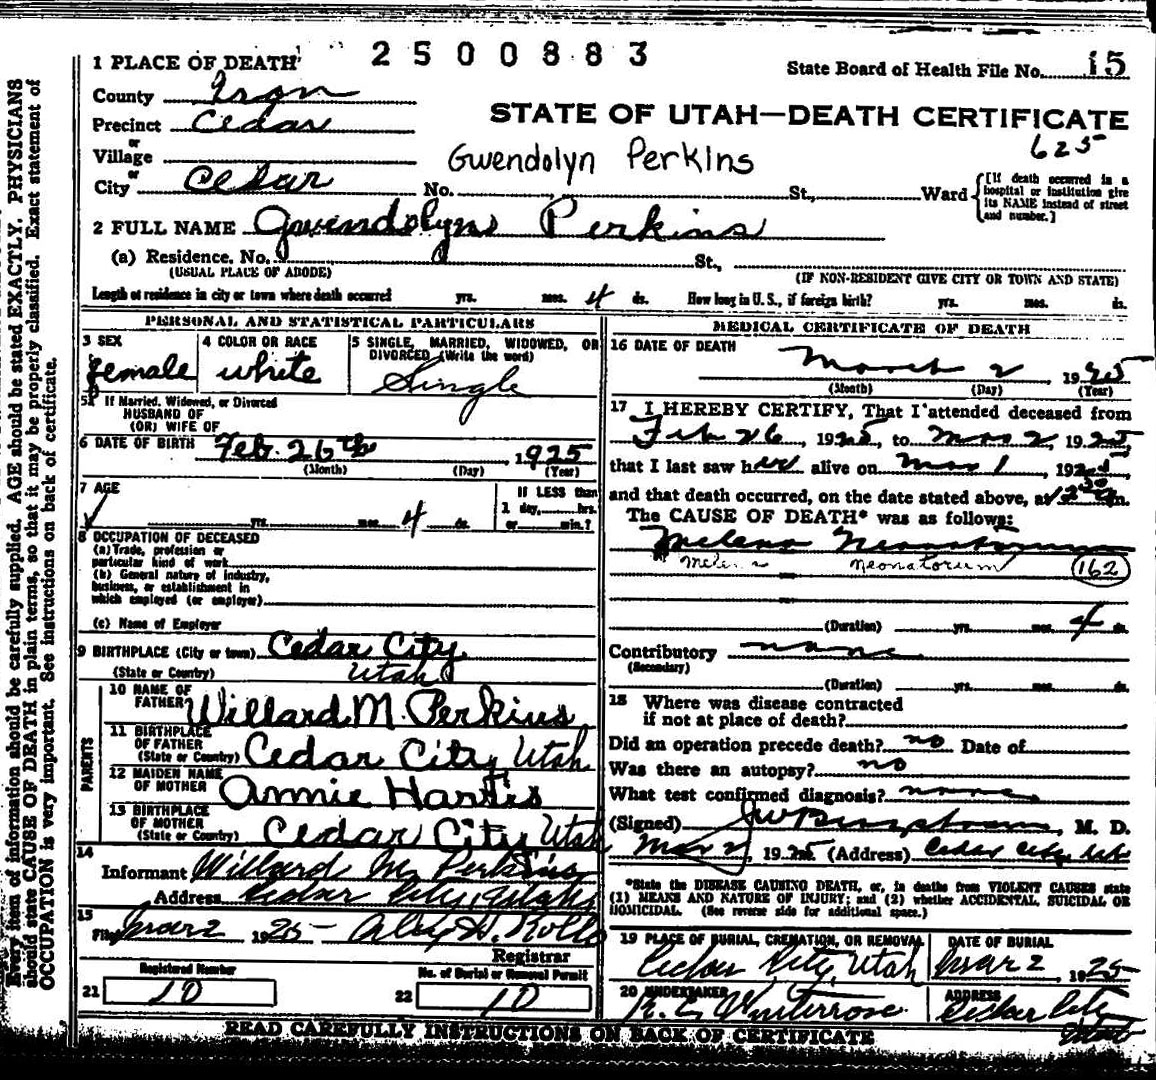 2500883
1 PLACE OF DEATH
State Board of Health File No. 15
County Iron
STATE OF UTAH—DEATH CERTIFICATE
Precinct Cedar
625
or
Village
Gwendolyn Perkins
or
City Cedar No. St., Ward
[If death occurred in a hospital or institution give its NAME instead of street and number.]
2 FULL NAME Gwendolyn Perkins
(a) Residence. No. St.,
(USUAL PLACE OF ABODE) (IF NON-RESIDENT GIVE CITY OR TOWN AND STATE)
Length of residence in city or town where death occurred yrs. mos. 4 ds. How long in U. S., if foreign birth? yrs. mos. ds.
PERSONAL AND STATISTICAL PARTICULARS
3 SEX
female
4 COLOR OR RACE
white
5 SINGLE, MARRIED, WIDOWED, OR
DIVORCED (Write the word)
Single
5a If Married, Widowed, or Divorced
HUSBAND OF
(OR) WIFE OF
6 DATE OF BIRTH Feb. 26th 1925
(Month) (Day) (Year)
7 AGE
yrs. mos. 4 ds.
If LESS than
1 day, hrs.
or min.?
8 OCCUPATION OF DECEASED
(a) Trade, profession or
particular kind of work
(b) General nature of industry,
business, or establishment in
which employed (or employer)
(c) Name of Employer
9 BIRTHPLACE (City or town) Cedar City
(State or Country) Utah
PARENTS
10 NAME OF
FATHER Willard M. Perkins
11 BIRTHPLACE
OF FATHER
(State or Country) Cedar City Utah
12 MAIDEN NAME
OF MOTHER Annie Harris
13 BIRTHPLACE
OF MOTHER
(State or Country) Cedar City Utah
14
Informant Willard M. Perkins
Address Cedar City, Utah
15
Filed Mar 2 1925
Registrar
Registered Number
21 10
No. of Burial or Removal Permit
22 10
MEDICAL CERTIFICATE OF DEATH
16 DATE OF DEATH
March 2 1925
(Month) (Day) (Year)
17 I HEREBY CERTIFY, That I attended deceased from
Feb 26, 1925, to Mar 2 1925,
that I last saw her alive on Mar 1, 1925,
and that death occurred, on the date stated above, at m.
The CAUSE OF DEATH* was as follows:
Melena Neonatorum
Melena Neonatorum 162
(Duration) yrs. mos. 4 ds.
Contributory none
(Secondary)
(Duration) yrs. mos. ds.
18 Where was disease contracted
if not at place of death?
Did an operation precede death? no Date of
Was there an autopsy? no
What test confirmed diagnosis? none
(Signed) M. D.
Mar 2, 1925 (Address) Cedar City Utah
*State the DISEASE CAUSING DEATH, or, in deaths from VIOLENT CAUSES state
(1) MEANS AND NATURE OF INJURY; and (2) whether ACCIDENTAL, SUICIDAL OR
HOMICIDAL. (See reverse side for additional space.)
19 PLACE OF BURIAL, CREMATION, OR REMOVAL
Cedar City, Utah
DATE OF BURIAL
Mar 2 1925
20 UNDERTAKER
ADDRESS
Cedar City
Utah
READ CAREFULLY INSTRUCTIONS ON BACK OF CERTIFICATE
Every item of information should be carefully supplied. AGE should be stated EXACTLY. PHYSICIANS
should state CAUSE OF DEATH in plain terms, so that it may be properly classified. Exact statement of
OCCUPATION is very important. See instructions on back of certificate.